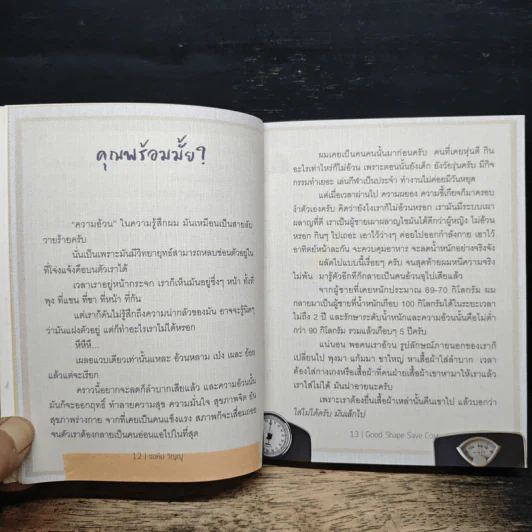 คุณพร้อมมั้ย?
"ความอ้วน" ในความรู้สึกผม มันเหมือนเป็นสายลับ
วายร้ายครับ
นั่นเป็นเพราะมันมีวิทยายุทธ์สามารถหลบซ่อนตัวอยู่ใน
ที่โจ่งแจ้งคือบนตัวเราได้
เวลาเราอยู่หน้ากระจก เราก็เห็นมันอยู่ซึ่งๆ หน้า ทั้งที่
พุง ที่แขน ที่ขา ที่หน้า ที่ก้น
แต่เราก็ดันไม่รู้สึกถึงความน่ากลัวของมัน อาจจะรู้นิดๆ
ว่ามันแฝงตัวอยู่ แต่ก็ทำอะไรเราไม่ได้หรอก
หึหึหึ...
เผลอแวบเดียวเท่านั้นแหละ อ้วนหลาม เป่ง เผละ ย้อย
แล้วแต่จะเรียก
คราวนี้อยากจะลดก็ลำบากเสียแล้ว และความอ้วนนั้น
มันก็จะออกฤทธิ์ ทำลายความสุข ความมั่นใจ สุขภาพจิต ยัน
สุขภาพร่างกาย จากที่เคยเป็นคนแข็งแรง สภาพก็จะเสื่อมถอย
จนตัวเราต้องกลายเป็นคนอ่อนแอไปในที่สุด
12 |
ผมเคยเป็นคนคนนั้นมาก่อนครับ คนที่เคยหุ่นดี กิน
อะไรเท่าไหร่ก็ไม่อ้วน เพราะตอนนั้นยังเด็ก ยังวัยรุ่นครับ มีกิจ
กรรมทำเยอะ เล่นกีฬาเป็นประจำ ทำงานไม่ค่อยมีวันหยุด
แต่เมื่อเวลาผ่านไป ความผยอง ความขี้เกียจก็มาครอบ
งำตัวเองครับ คิดว่ายังไงเราก็ไม่อ้วนหรอก เรามันมีระบบเผา
ผลาญที่ดี เราเป็นผู้ชายเผาผลาญไขมันได้ดีกว่าผู้หญิง ไม่อ้วน
หรอก กินๆ ไปเถอะ เอาไว้ว่างๆ ค่อยไปออกกำลังกาย เอาไว้
อาทิตย์หน้าละกัน จะควบคุมอาหาร จะลดน้ำหนักอย่างจริงจัง
ผลัดไปแบบนี้เรื่อยๆ ครับ จนสุดท้ายผมหนีความจริง
ไม่พ้น มารู้ตัวอีกทีก็กลายเป็นคนอ้วนจุไปเสียแล้ว
จากผู้ชายที่เคยหนักประมาณ 69-70 กิโลกรัม ผม
กลายมาเป็นผู้ชายที่น้ำหนักเกือบ 100 กิโลกรัมได้ในระยะเวลา
ไม่ถึง 2 ปี และรักษาระดับน้ำหนักและความอ้วนนั้นคือไม่ต่ำ
กว่า 90 กิโลกรัม รวมแล้วเกือบๆ 5 ปีครับ
แน่นอน พอคนเราอ้วน รูปลักษณ์ภายนอกของเราก็
เปลี่ยนไป พุงมา แก้มมา ขาใหญ่ หาเสื้อผ้าใส่ลำบาก เวลา
ต้องใส่กางเกงหรือเสื้อผ้าที่คนฝ่ายเสื้อผ้าเขาหามาให้เราแล้ว
เราใส่ไม่ได้ มันน่าอายนะครับ
เพราะเราต้องยื่นเสื้อผ้าเหล่านั้นคืนเขาไป แล้วบอกว่า
ใส่ไม่ได้ครับ มันเล็กไป
13 | Good Shape Save Cost